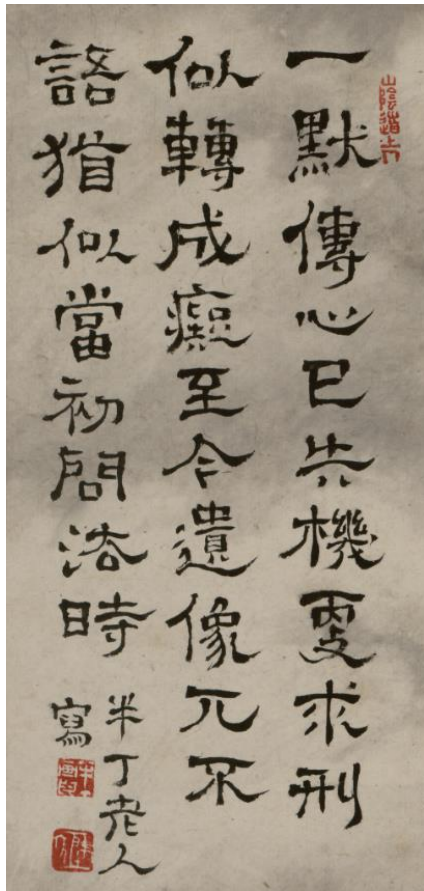 山陰道上
一默傳心已失機更求刑
似轉成癡至今遺像兀不
語猶似當初問法時
半丁老人
寫